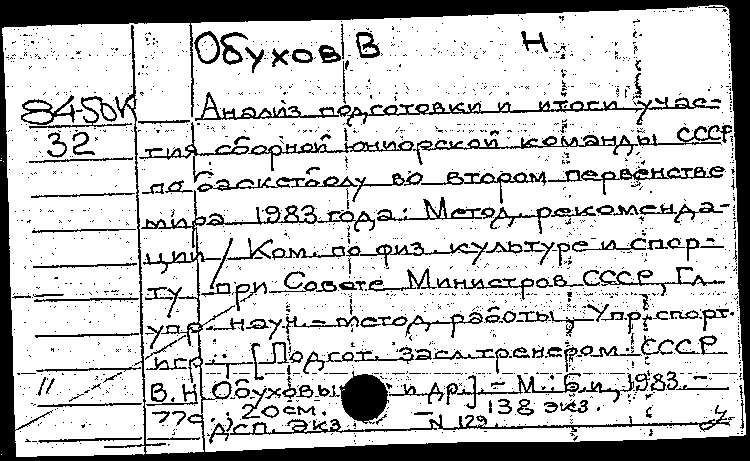 Обухов, В Н
8450К Анализ подготовки и итоги учас-
32 тия сборной юниорской команды СССР
по баскетболу во втором первенстве
мира 1983 года: Метод. рекоменда-
ции / Ком. по физ. культуре и спор-
ту при Совете Министров СССР, Гл.
упр. науч.-метод. работы, Упр. спорт.
игр.; [Подгот. засл. тренером СССР
В.Н Обуховы и др.]. - М.: Б.и., 1983. -
77с.; 20см. 138 экз.
Дсп. Экз N 129.